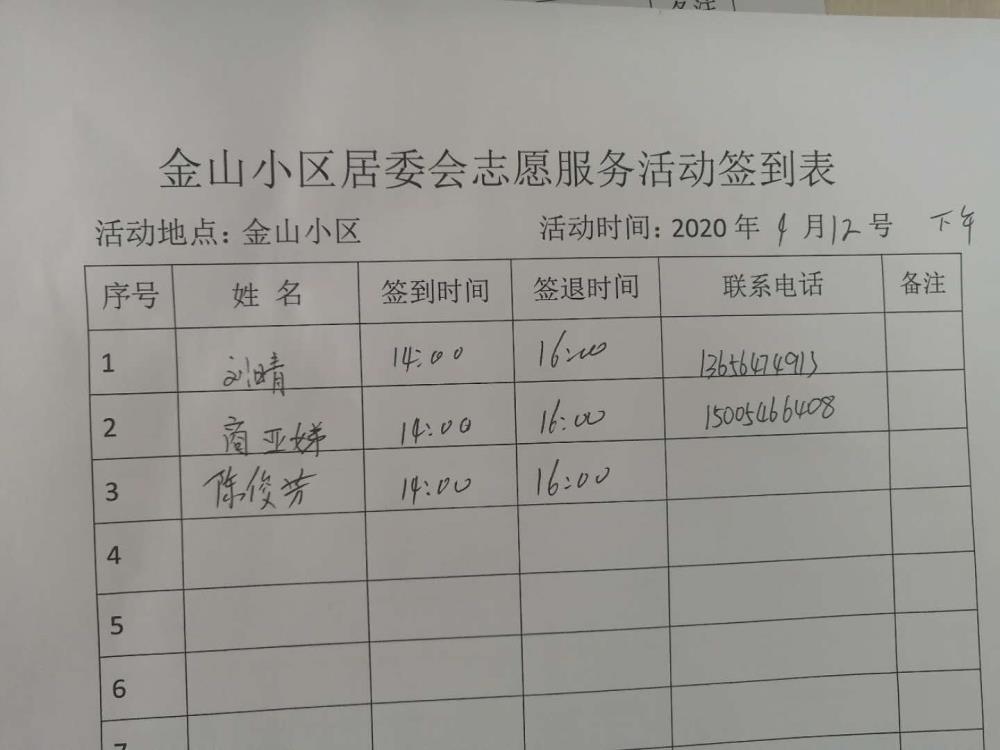 备注
金山小区居委会志愿服务活动签到表
活动地点：金山小区 活动时间：2020 年 9 月 12 号 下午
序号 姓 名 签到时间 签退时间 联系电话 备注
1 刘晴 14:00 16:00 13656474913
2 商亚娣 14:00 16:00 15005466408
3 陈俊芳 14:00 16:00
4
5
6
7